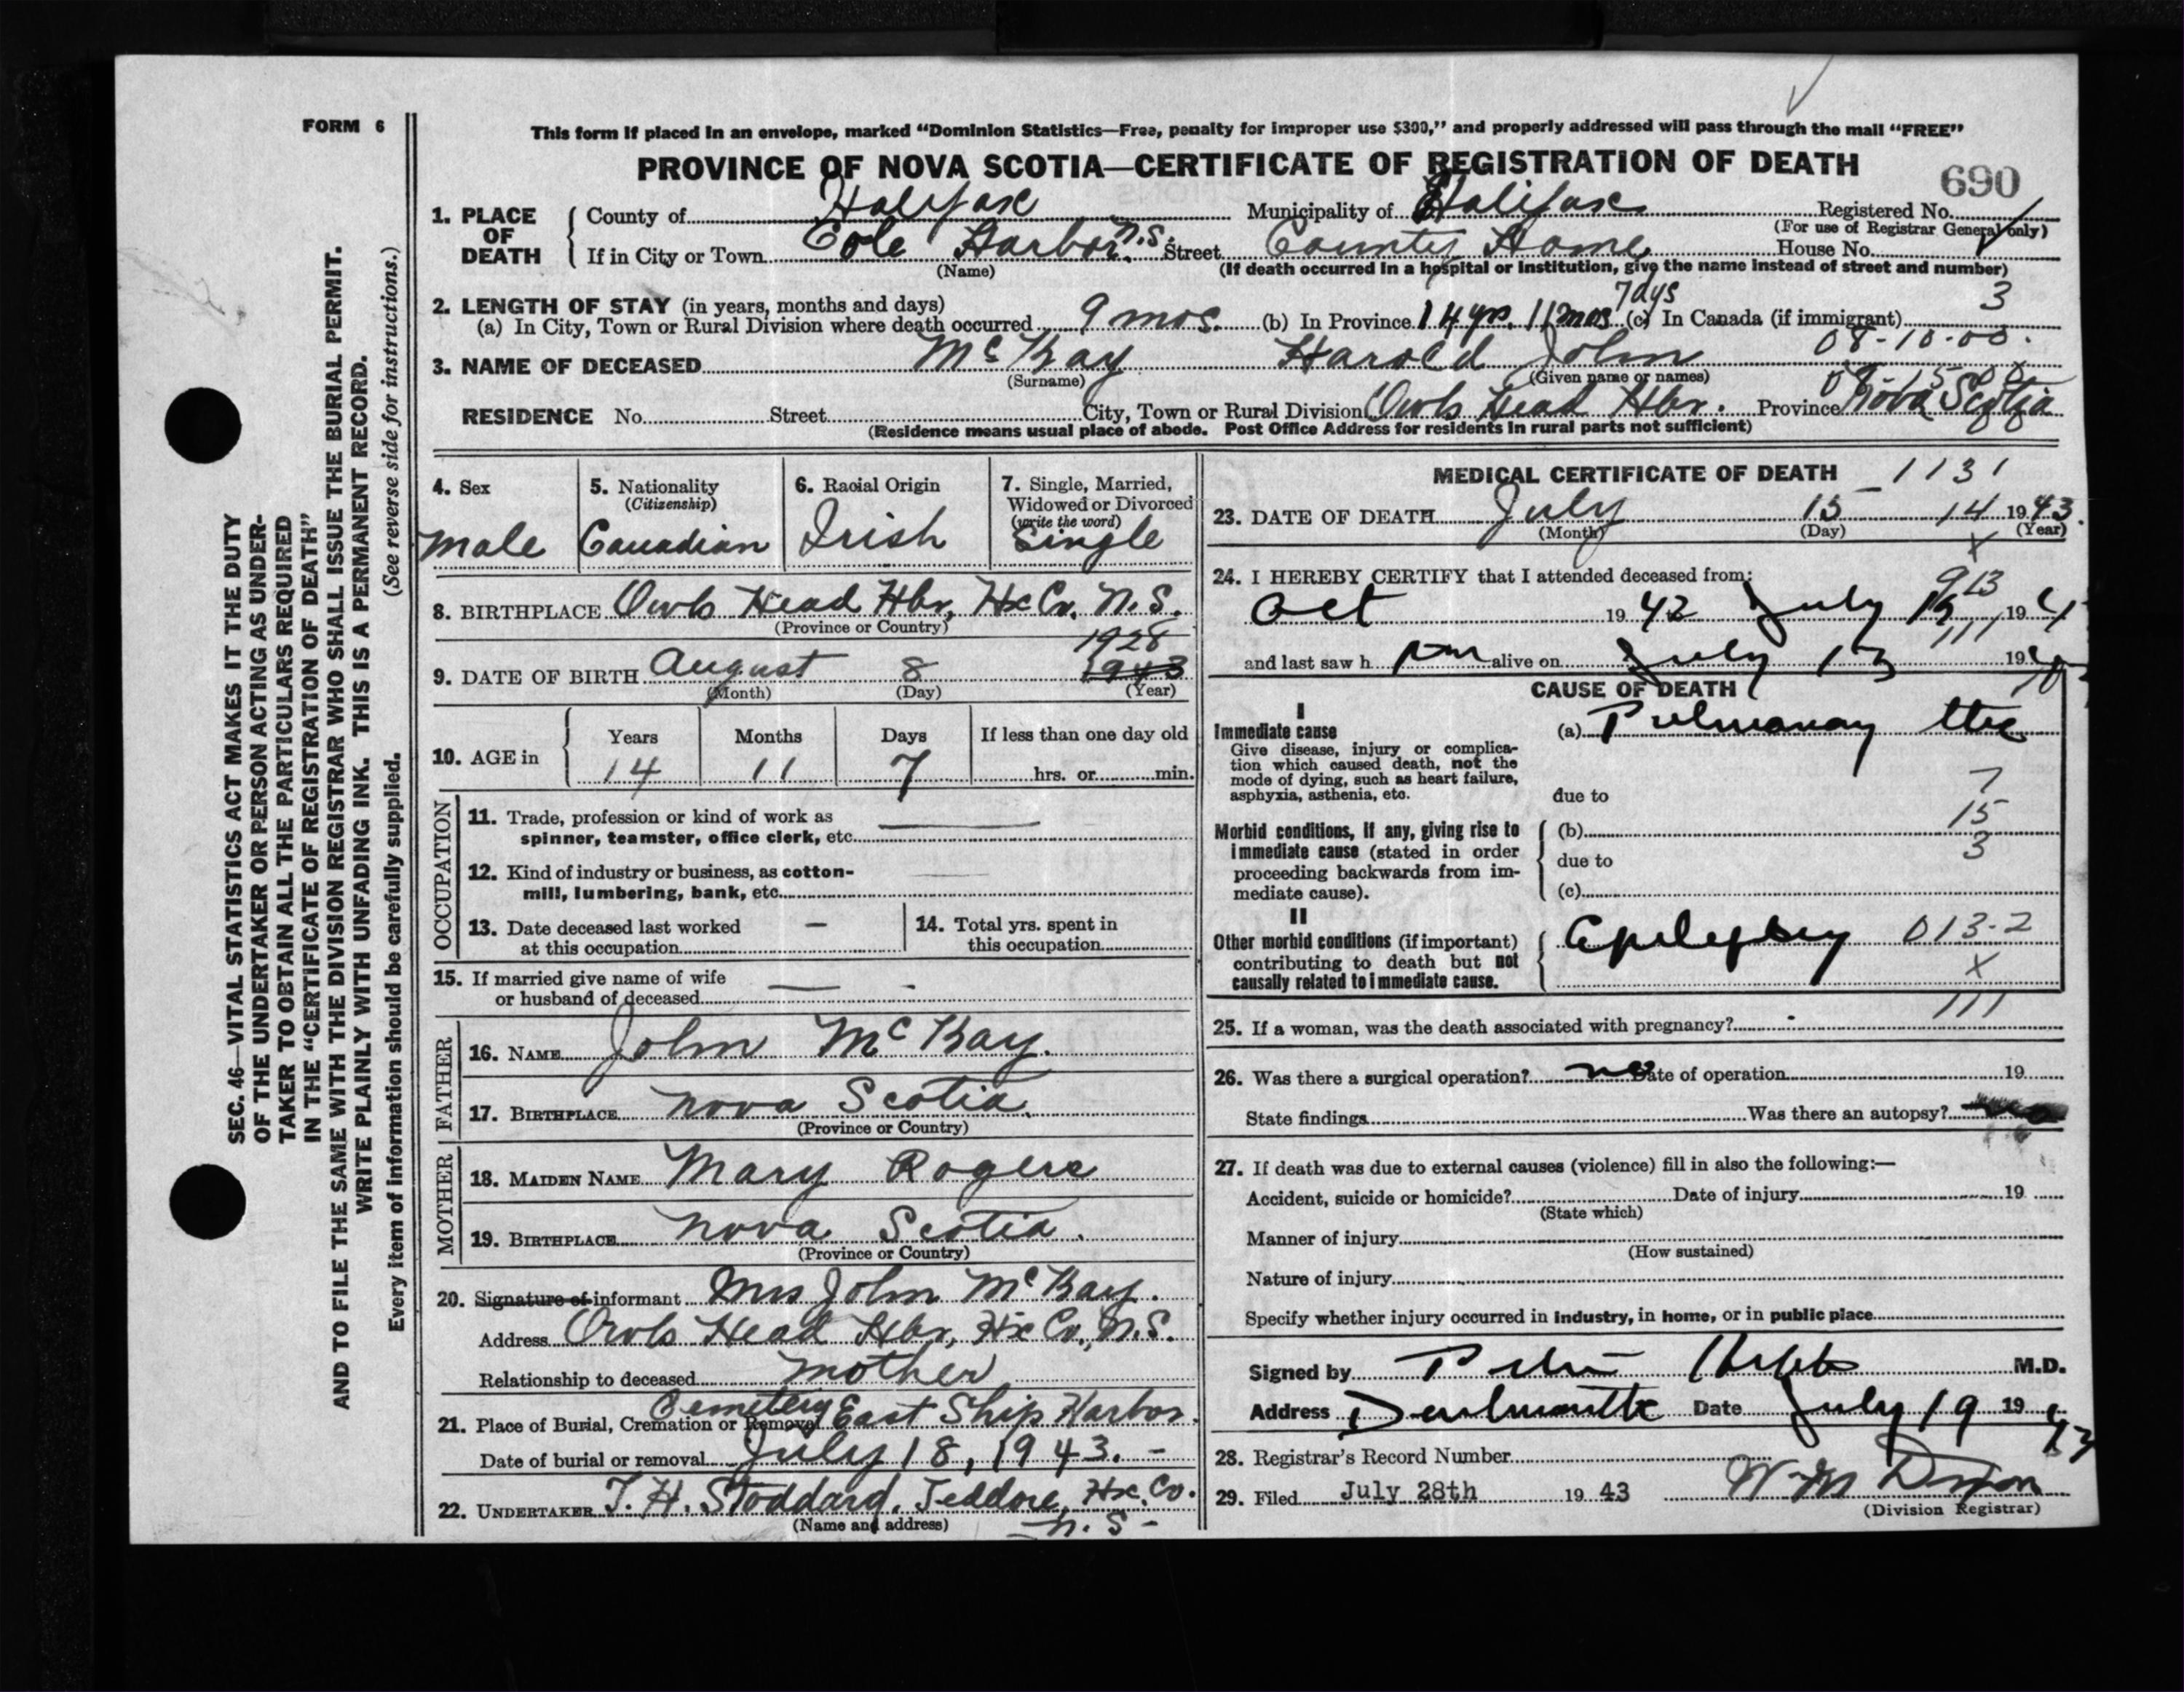 FORM 6
This form if placed in an envelope, marked "Dominion Statistics—Free, penalty for improper use $300," and properly addressed will pass through the mail "FREE"
PROVINCE OF NOVA SCOTIA—CERTIFICATE OF REGISTRATION OF DEATH
690
1. PLACE OF DEATH
County of Halifax Municipality of Halifax Registered No.
(For use of Registrar General only)
If in City or Town Cole Harbor, N.S. Street County Home House No.
(Name) (If death occurred in a hospital or institution, give the name instead of street and number)
2. LENGTH OF STAY (in years, months and days) 7 days 3
(a) In City, Town or Rural Division where death occurred 9 mos. (b) In Province 14 yrs. 11 mos (c) In Canada (if immigrant)
08-10-00.
3. NAME OF DECEASED McKay Harold John
(Surname) (Given name or names)
RESIDENCE No. Street City, Town or Rural Division Owls Head Hbr. Province Nova Scotia
(Residence means usual place of abode. Post Office Address for residents in rural parts not sufficient)
4. Sex 5. Nationality 6. Racial Origin 7. Single, Married,
(Citizenship) Widowed or Divorced
(write the word)
Male Canadian Irish Single
8. BIRTHPLACE Owls Head Hbr, Hx Co. N.S.
(Province or Country)
1928
9. DATE OF BIRTH August 8 1943
(Month) (Day) (Year)
10. AGE in Years Months Days If less than one day old
14 11 7 hrs. or min.
OCCUPATION
11. Trade, profession or kind of work as
spinner, teamster, office clerk, etc.
12. Kind of industry or business, as cotton-
mill, lumbering, bank, etc.
13. Date deceased last worked 14. Total yrs. spent in
at this occupation this occupation
15. If married give name of wife
or husband of deceased
FATHER
16. NAME John McKay.
17. BIRTHPLACE Nova Scotia.
(Province or Country)
MOTHER
18. MAIDEN NAME Mary Rogers
19. BIRTHPLACE Nova Scotia.
(Province or Country)
20. Signature of informant Mrs John McKay.
Address Owls Head Hbr, Hx Co., N.S.
Relationship to deceased mother
21. Place of Burial, Cremation or Removal Cemetery East Ship Harbor.
Date of burial or removal July 18, 1943. -
22. UNDERTAKER T. H. Stoddard, Jeddore, Hx. Co.
(Name and address) N. S -
MEDICAL CERTIFICATE OF DEATH 1131
23. DATE OF DEATH July 15 14 1943.
(Month) (Day) (Year)
24. I HEREBY CERTIFY that I attended deceased from:
Oct 1942 July 19
and last saw h im alive on July 13 19
CAUSE OF DEATH
I
Immediate cause (a) Pulmonary tbc
Give disease, injury or complica-
tion which caused death, not the
mode of dying, such as heart failure,
asphyxia, asthenia, etc. due to
7
15
3
Morbid conditions, if any, giving rise to (b)
immediate cause (stated in order due to
proceeding backwards from im-
mediate cause). (c)
II
Other morbid conditions (if important) Epilepsy 013-2
contributing to death but not
causally related to immediate cause. X
111
25. If a woman, was the death associated with pregnancy?
26. Was there a surgical operation? no Date of operation 19
State findings Was there an autopsy? no
27. If death was due to external causes (violence) fill in also the following:—
Accident, suicide or homicide? Date of injury 19
(State which)
Manner of injury
(How sustained)
Nature of injury
Specify whether injury occurred in industry, in home, or in public place
Signed by M.D.
Address Dartmouth Date July 19 1943
28. Registrar's Record Number
29. Filed July 28th 1943
(Division Registrar)
SEC. 46—VITAL STATISTICS ACT MAKES IT THE DUTY
OF THE UNDERTAKER OR PERSON ACTING AS UNDER-
TAKER TO OBTAIN ALL THE PARTICULARS REQUIRED
IN THE "CERTIFICATE OF REGISTRATION OF DEATH"
AND TO FILE THE SAME WITH THE DIVISION REGISTRAR WHO SHALL ISSUE THE BURIAL PERMIT.
WRITE PLAINLY WITH UNFADING INK. THIS IS A PERMANENT RECORD.
Every item of information should be carefully supplied. (See reverse side for instructions.)